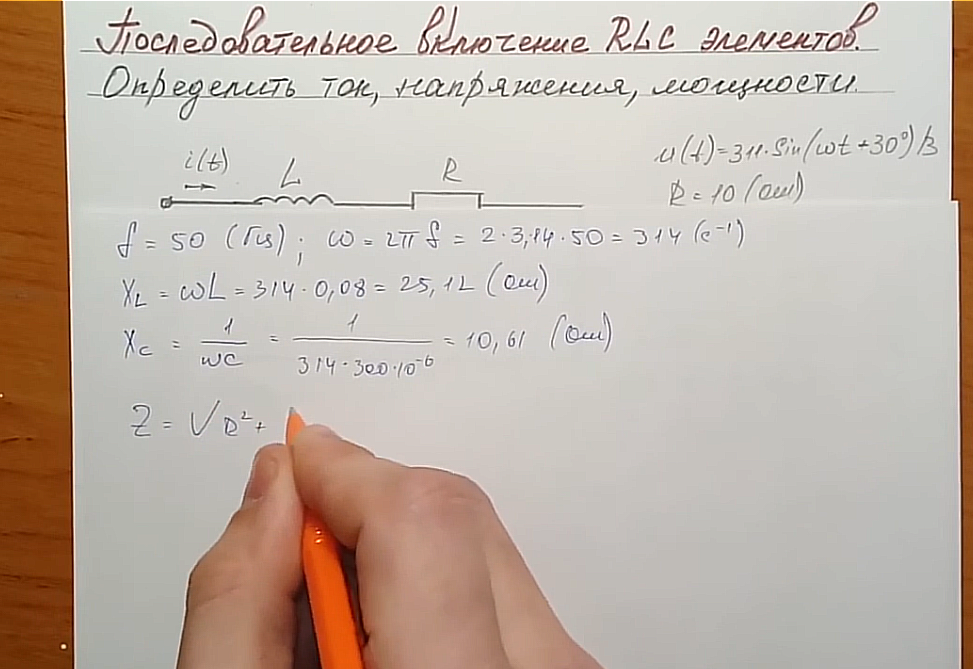 Последовательное включение RLC элементов.
Определить ток, напряжения, мощности.
i(t) L R
u(t)=311·Sin(ωt+30°) В
R=10 (Ом)
f = 50 (Гц) ; ω = 2π f = 2·3,14·50 = 314 (с⁻¹)
X_L = ωL = 314·0,08 = 25,12 (Ом)
X_C = 1/ωC = 1/314·300·10⁻⁶ = 10,61 (Ом)
Z = √R²+